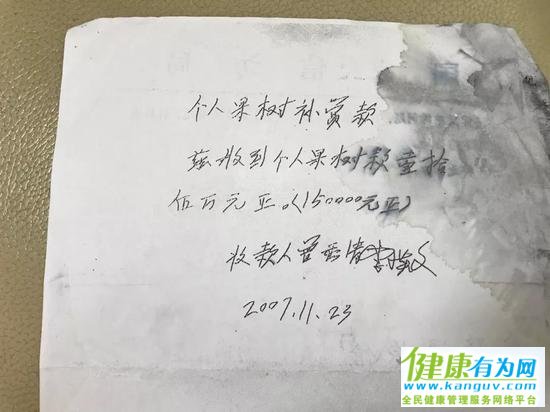 个人果树补赏款
兹收到个人果树款壹拾
伍万元正。(150000元正)
收款人曾
2007.11.23
健康有为网
www.kanguv.com
全民健康管理服务网络平台